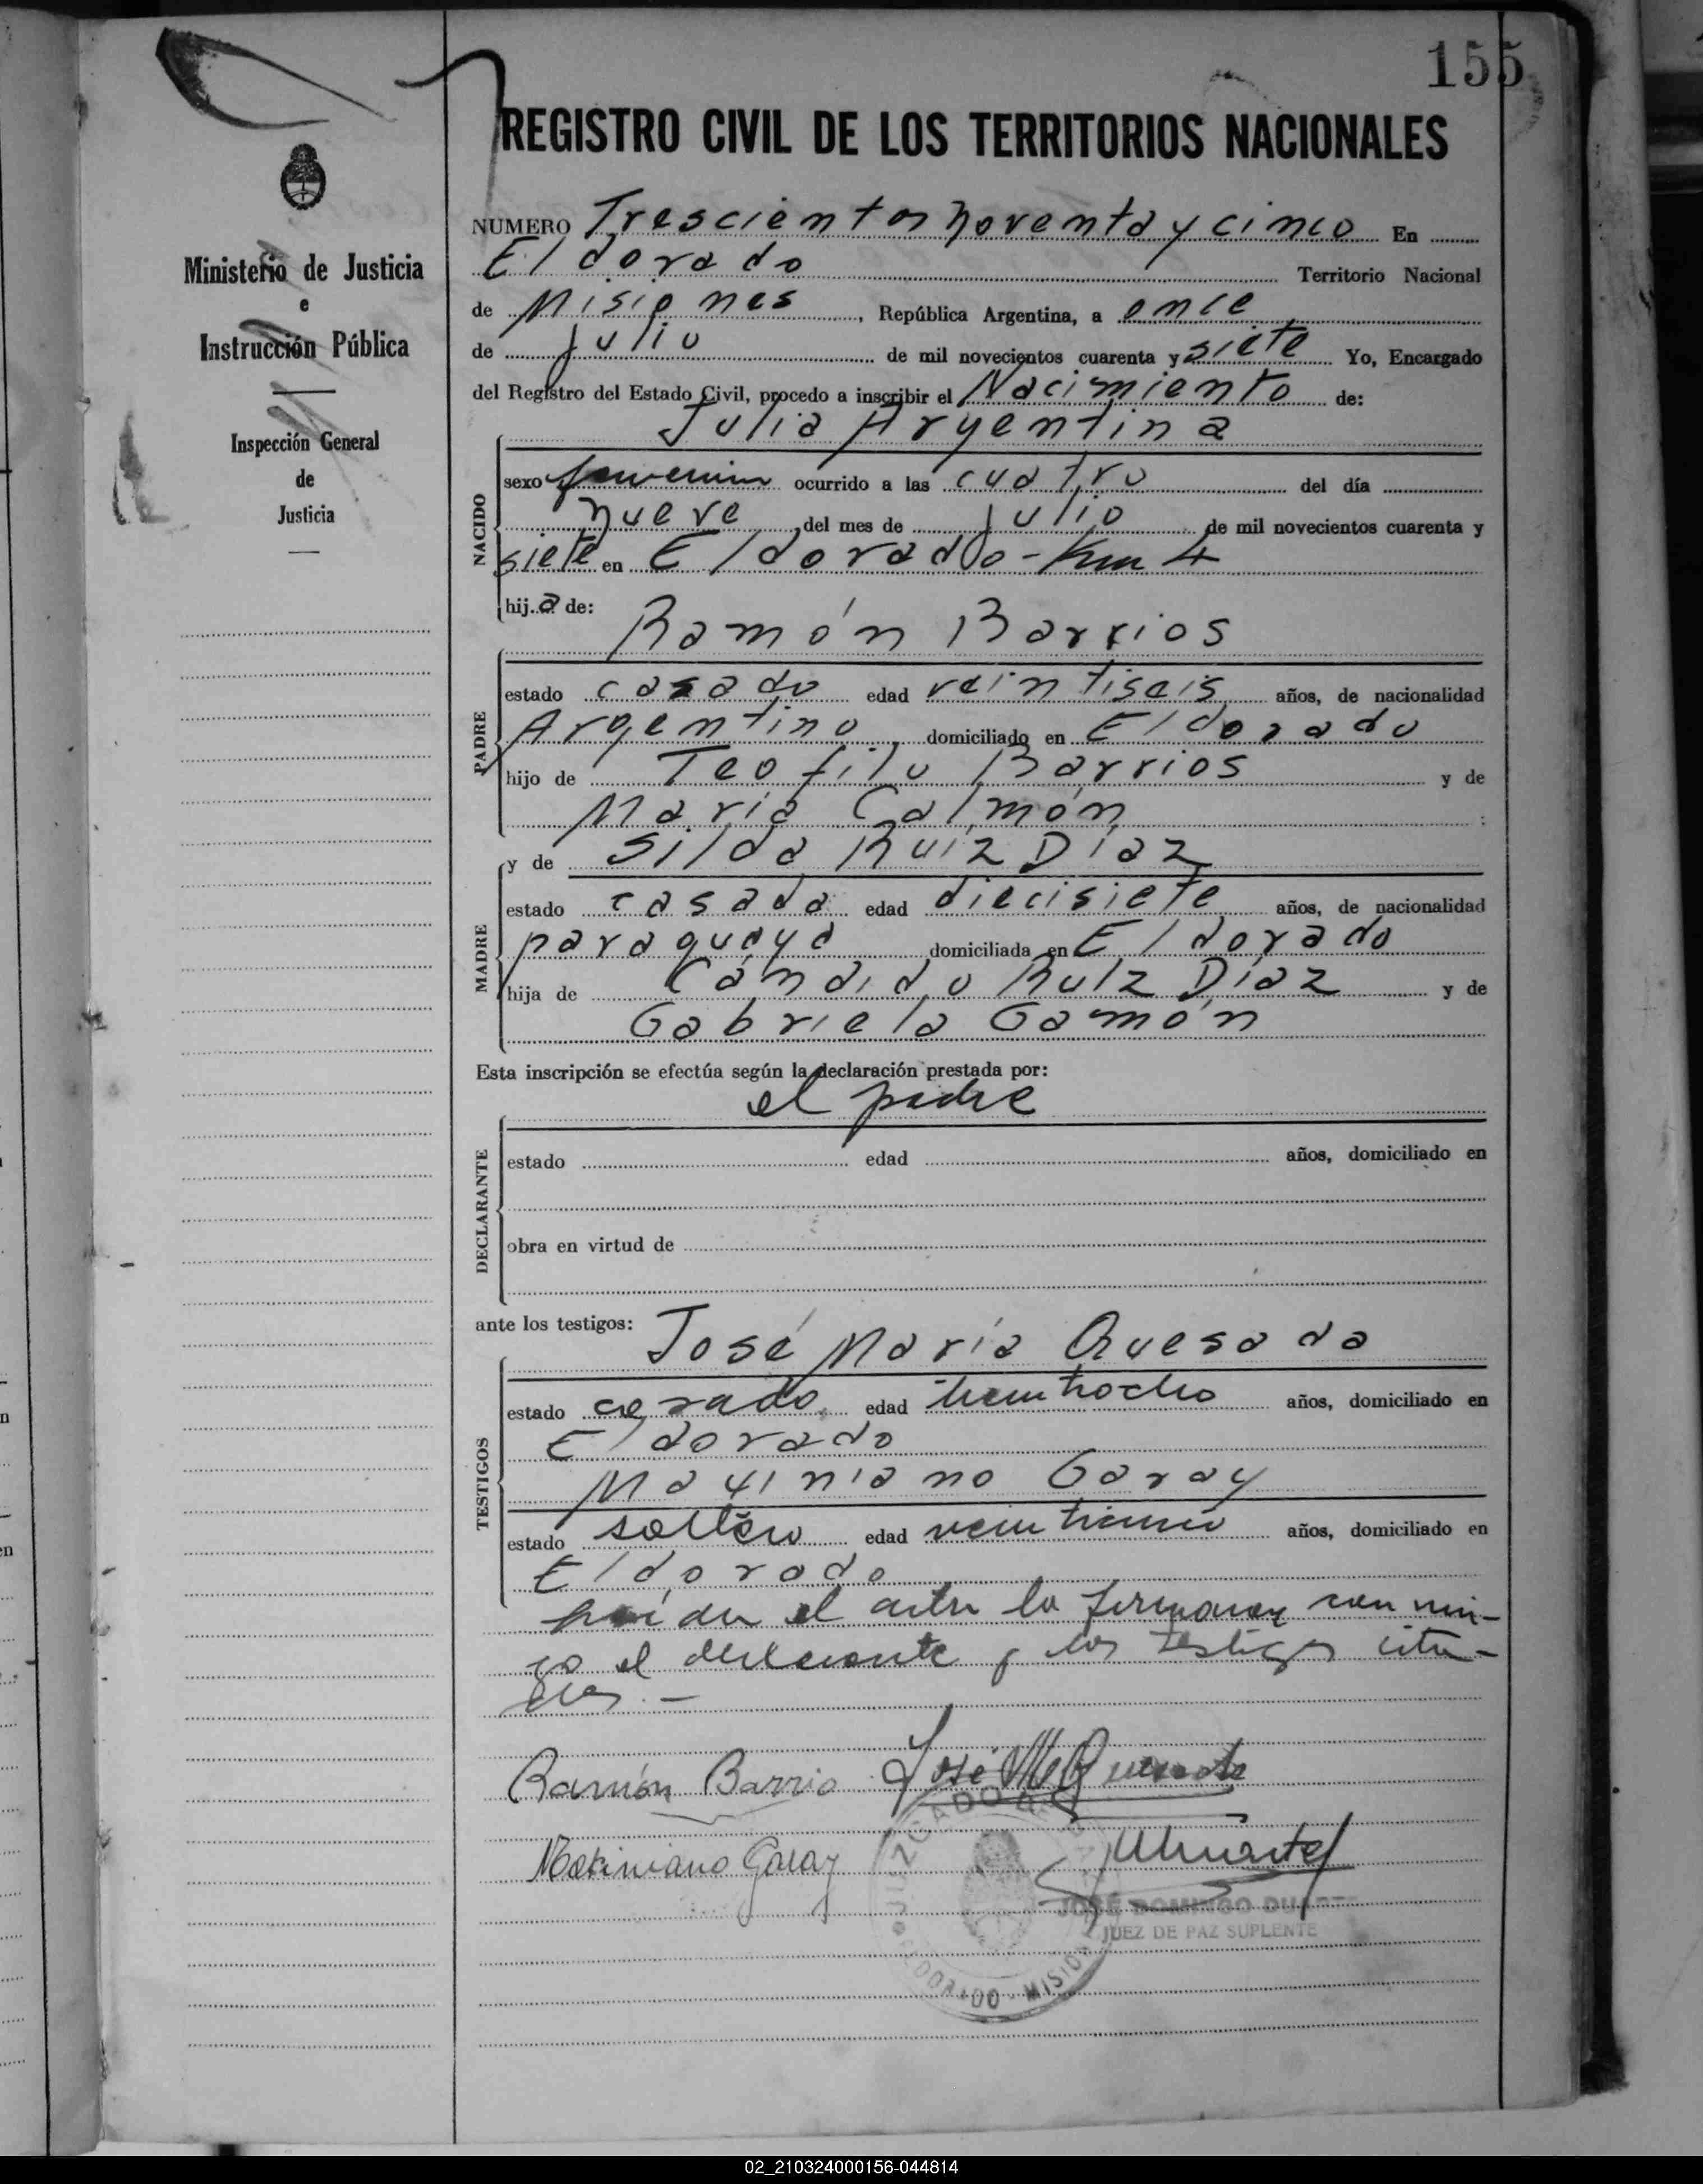 155
REGISTRO CIVIL DE LOS TERRITORIOS NACIONALES
Ministerio de Justicia
e
Instrucción Pública
Inspección General
de
Justicia
NUMERO Trescientos noventa y cinco En
Eldorado Territorio Nacional
de Misiones, República Argentina, a once
de julio de mil novecientos cuarenta y siete Yo, Encargado
del Registro del Estado Civil, procedo a inscribir el Nacimiento de:
Julia Argentina
NACIDO
sexo femenino ocurrido a las cuatro del día
nueve, del mes de julio de mil novecientos cuarenta y
siete en Eldorado - Km 4
hija de:
Ramón Barrios
PADRE
estado casado edad veintiseis años, de nacionalidad
Argentino, domiciliado en Eldorado
hijo de Teofilo Barrios y de
María Galmón :
y de Silda Ruíz Díaz
MADRE
estado casada edad diecisiete años, de nacionalidad
paraguaya domiciliada en Eldorado
hija de Cándido Ruíz Díaz y de
Gabriela Gamón
Esta inscripción se efectúa según la declaración prestada por:
el padre
DECLARANTE
estado edad años, domiciliado en
obra en virtud de
ante los testigos:
José María Quesada
TESTIGOS
estado casado, edad años, domiciliado en
Eldorado
Maximiano Garay
estado soltero edad años, domiciliado en
Eldorado
el acta la firmaron con mi-
go el declarante y los testigos cita-
dos. -
Ramón Barrio José Ma Quesada
Maximiano Garay
JUZGADO DE PAZ
ELDORADO - MISIONES
JOSÉ DOMINGO DUARTE
JUEZ DE PAZ SUPLENTE
02_210324000156-044814